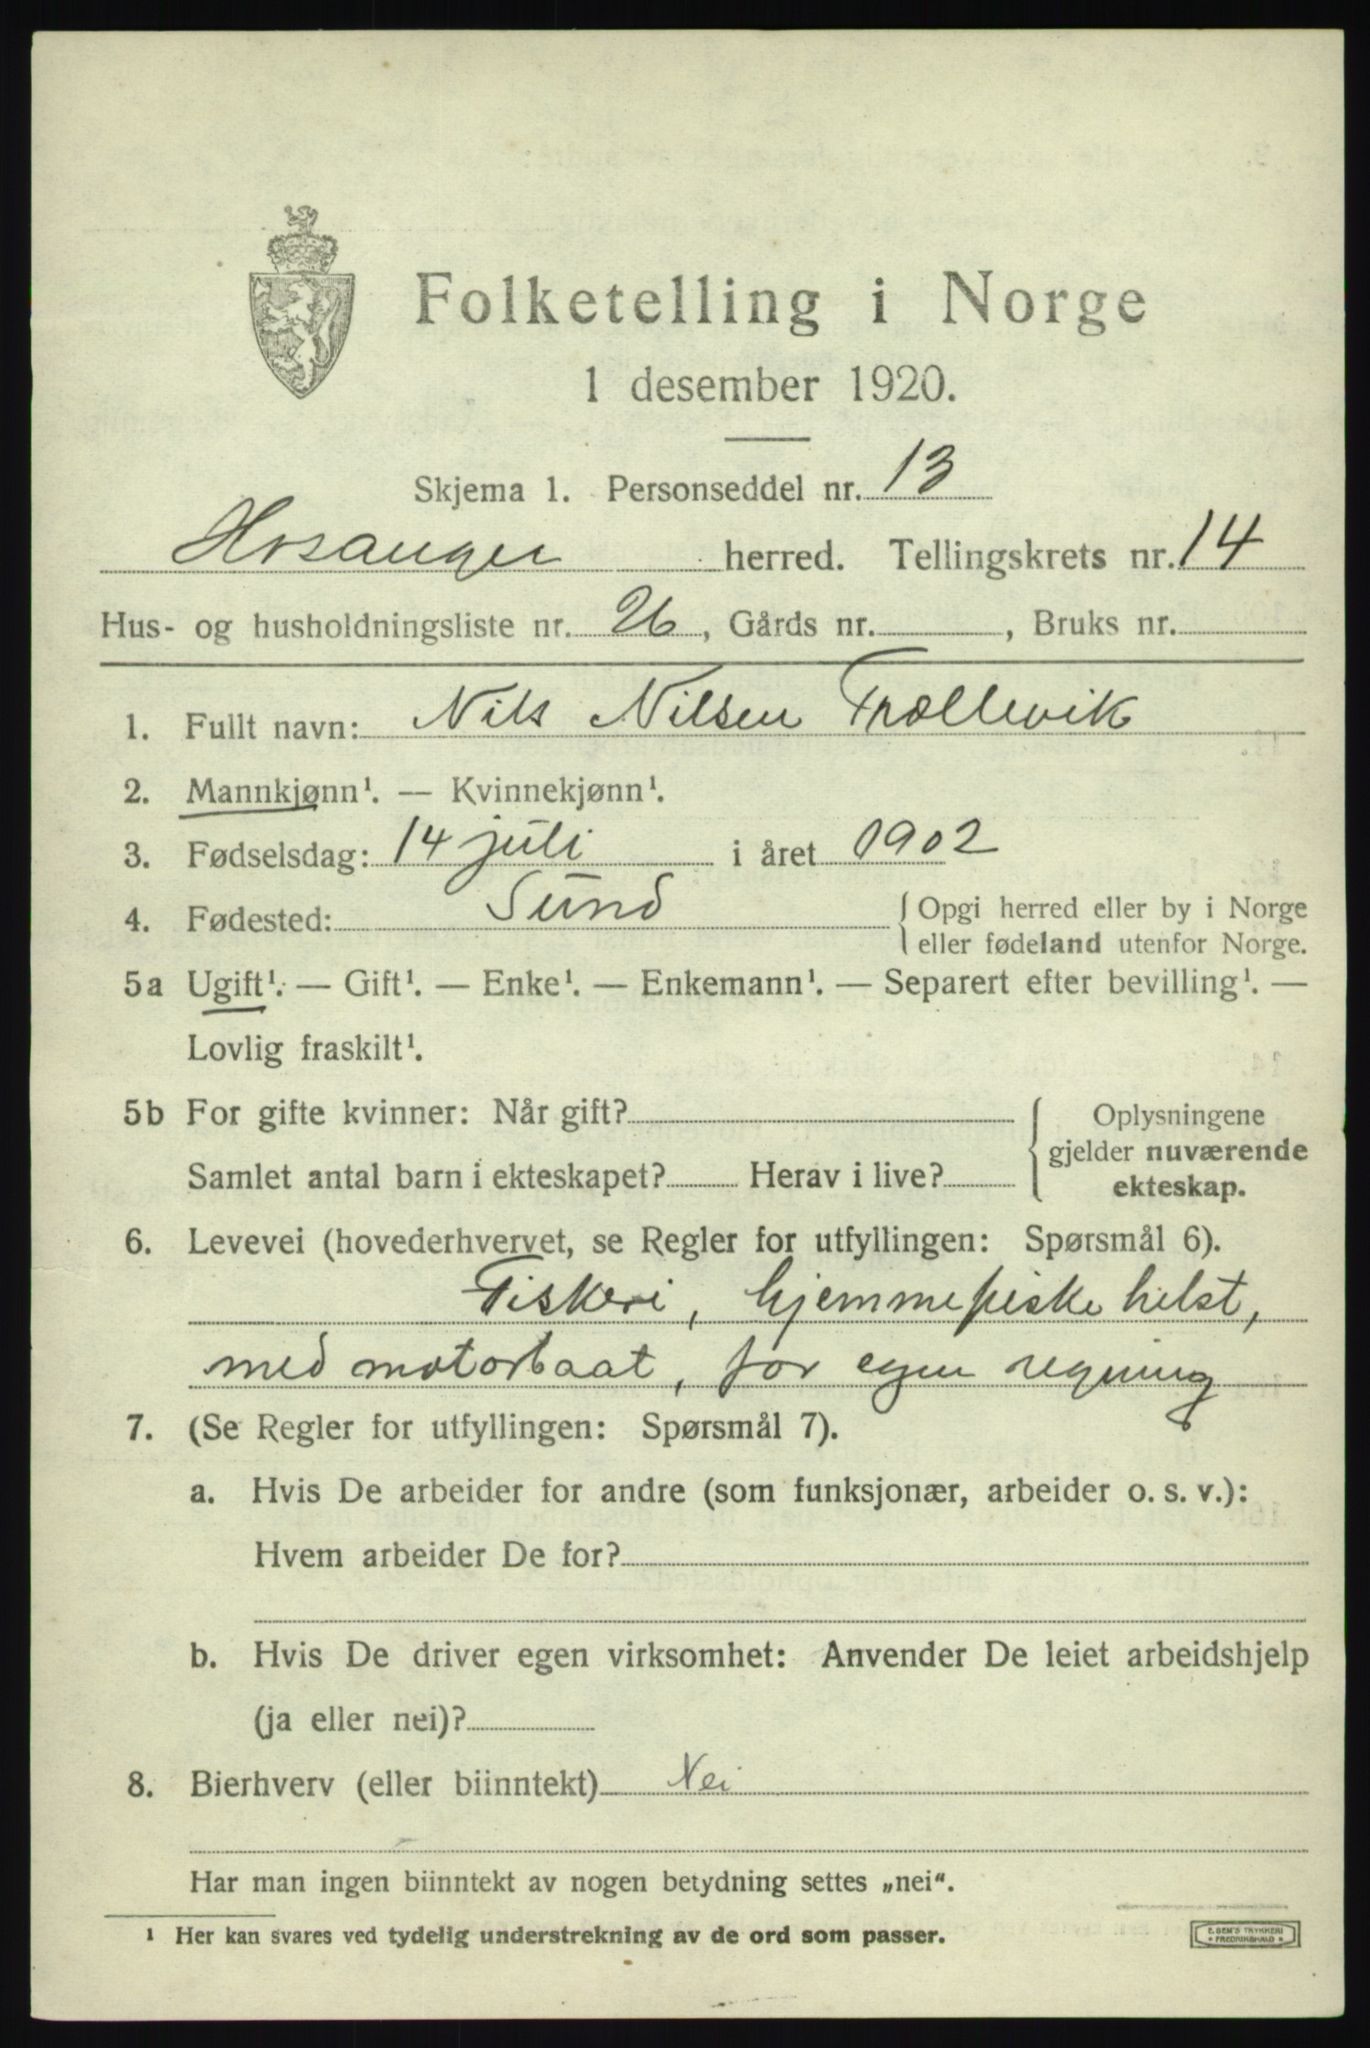 Folketelling i Norge
1 desember 1920.
Skjema 1. Personseddel nr. 13
Hosanger herred. Tellingskrets nr. 14
Hus- og husholdningsliste nr. 26, Gårds nr. , Bruks nr.
1. Fullt navn: Nils Nilsen Trællevik
2. Mannkjønn¹. — Kvinnekjønn¹.
3. Fødselsdag: 14 juli i året 1902
4. Fødested: Sund { Opgi herred eller by i Norge
eller fødeland utenfor Norge.
5a Ugift¹. — Gift¹. — Enke¹. — Enkemann¹. — Separert efter bevilling¹. —
Lovlig fraskilt¹.
5b For gifte kvinner: Når gift? { Oplysningene
gjelder nuværende
Samlet antal barn i ekteskapet? Herav i live? ekteskap.
6. Levevei (hovederhvervet, se Regler for utfyllingen: Spørsmål 6).
Fiskeri, hjemmefiske helst,
med motorbaat, for egen regning
7. (Se Regler for utfyllingen: Spørsmål 7).
a. Hvis De arbeider for andre (som funksjonær, arbeider o. s. v.):
Hvem arbeider De for?
b. Hvis De driver egen virksomhet: Anvender De leiet arbeidshjelp
(ja eller nei)?
8. Bierhverv (eller biinntekt) Nei
Har man ingen biinntekt av nogen betydning settes „nei“.
¹ Her kan svares ved tydelig understrekning av de ord som passer.
E. SEM'S TRYKKERI
* FREDRIKSHALD *